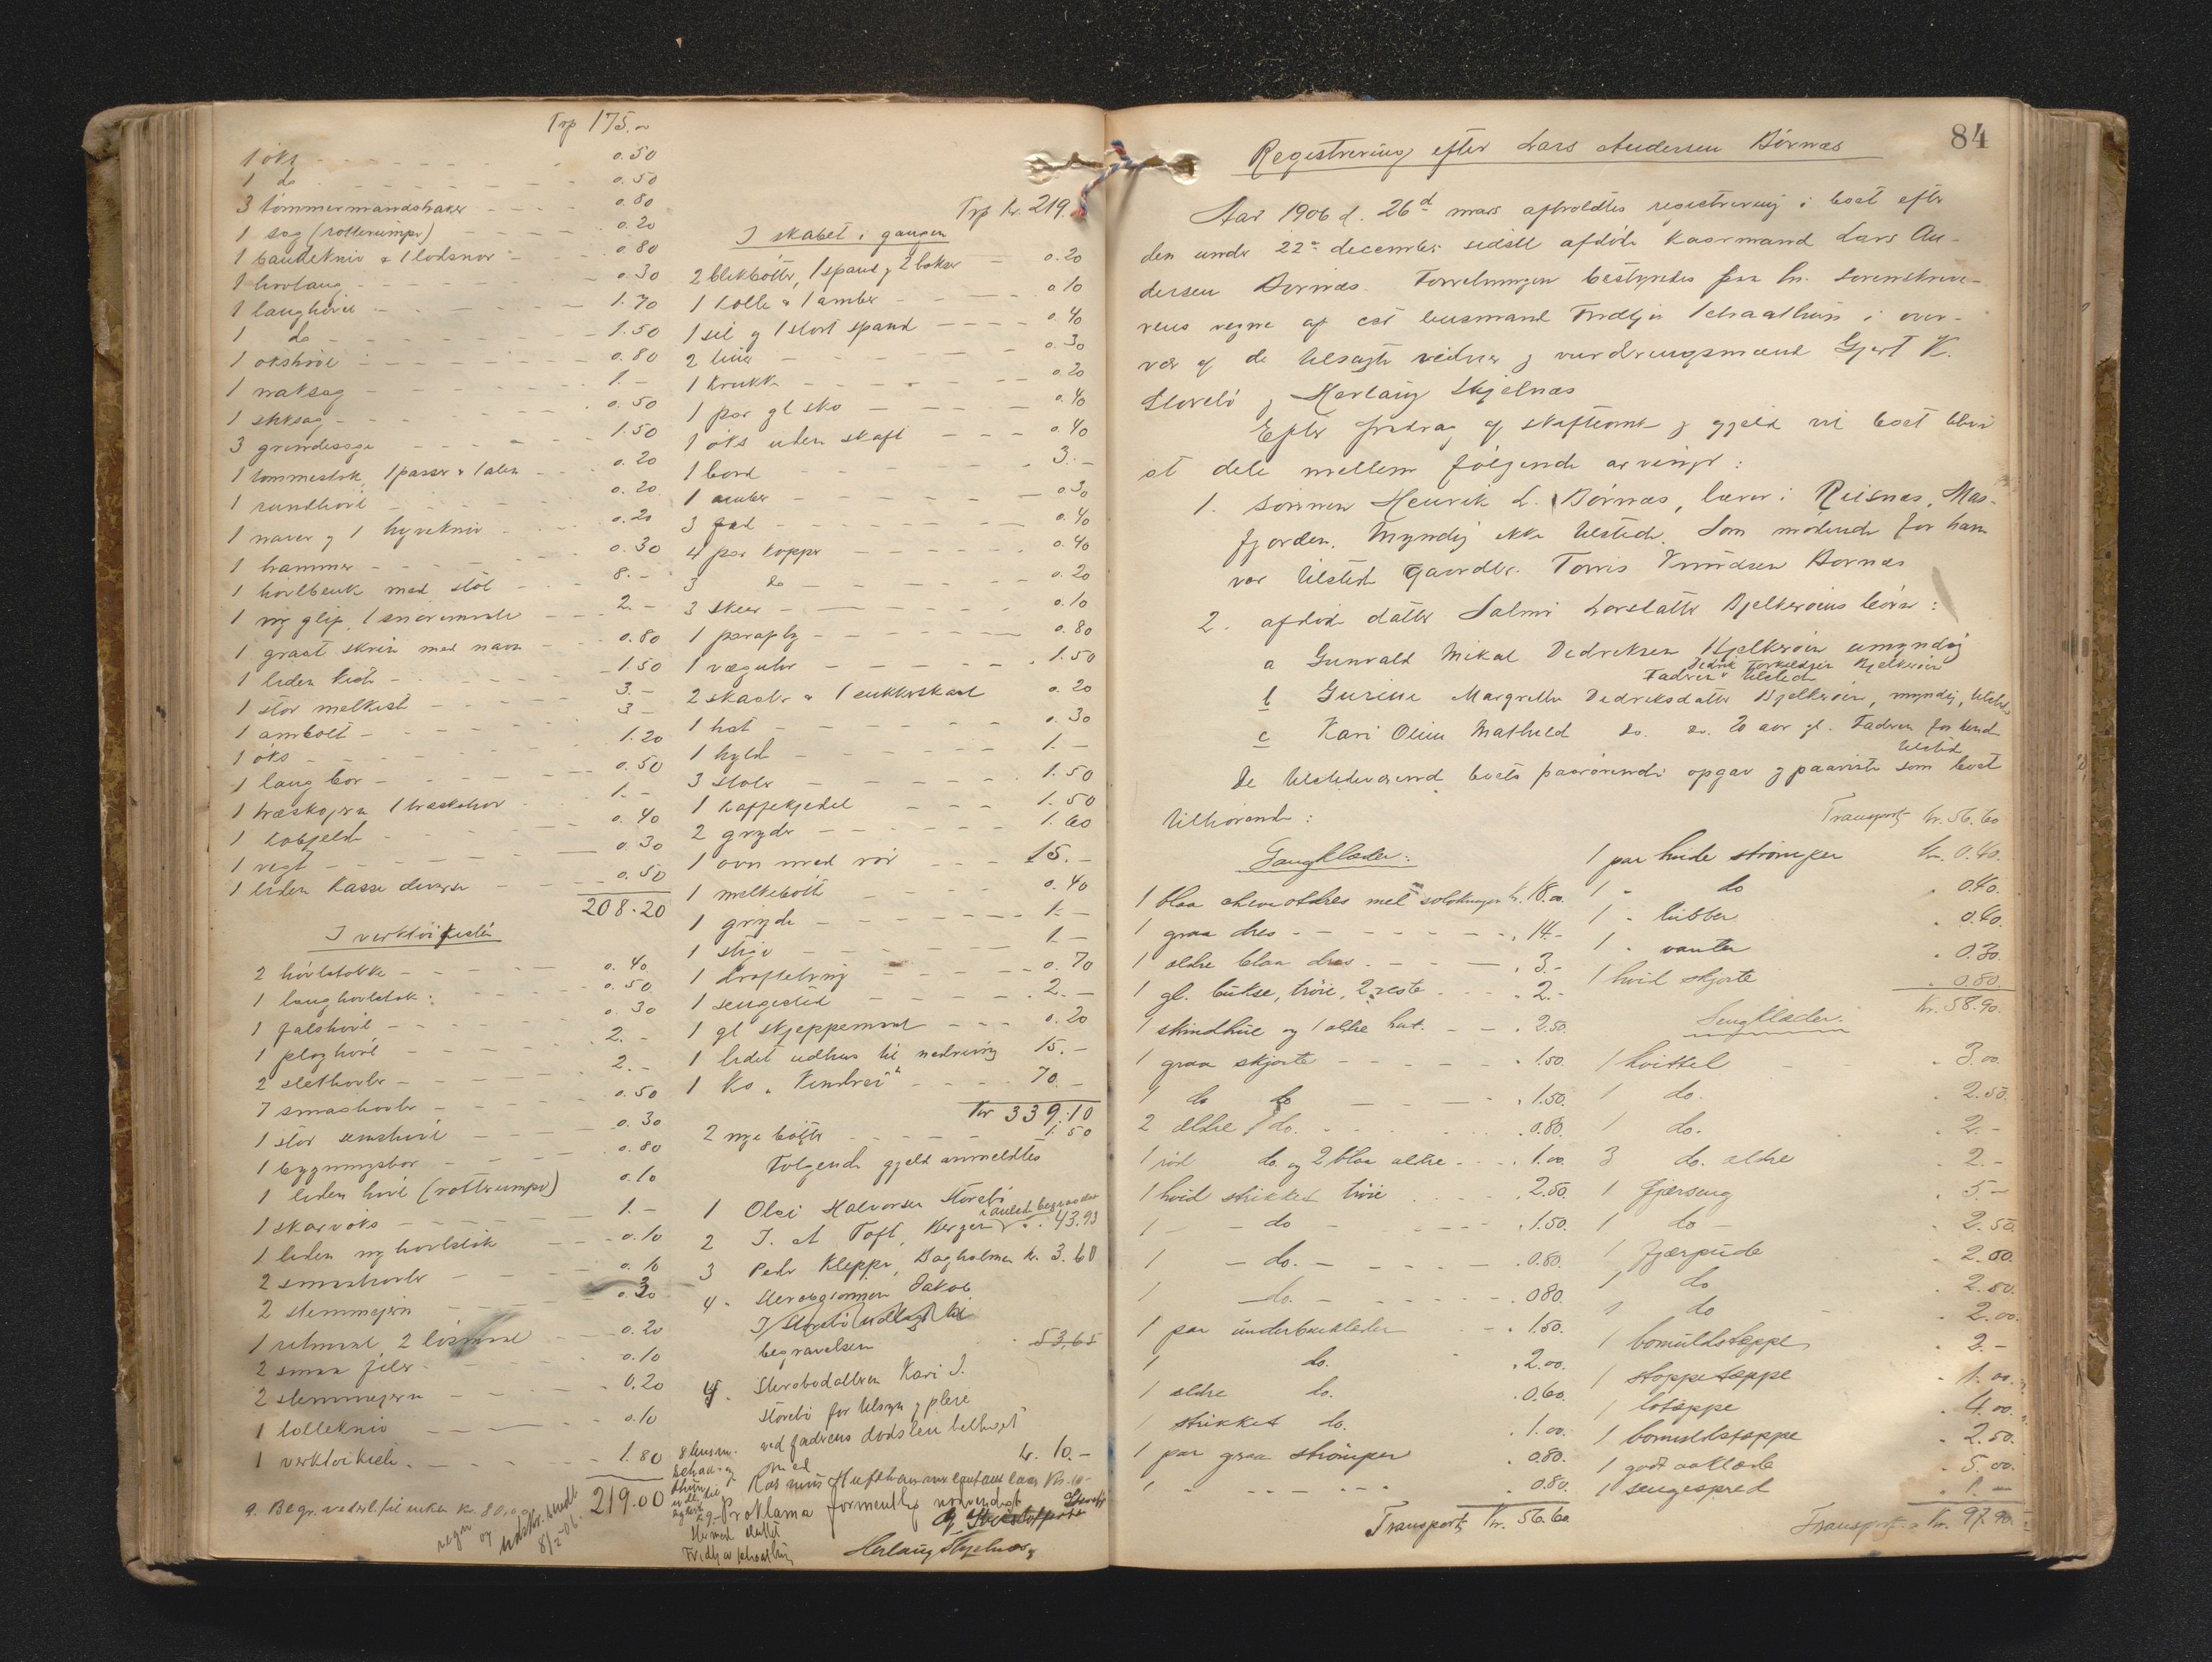 Trp 175.-
1 øks - - - 0.50
1 do - - - 0.50
3 tømmermandshaker - - - 0.80
1 sag (rotterumpe) - - - 0.20
1 baudekniv & 1 lodsnor - - - 0.80
0.30
1 langhøvl - - - 1.70
1 do - - - 1.50
1 okshøvl - - - 0.80
1 naksag - - - 1.-
1 stiksag - - - 0.50
3 grindesage - - - 1.50
1 tommestok, 1 passer & 1 alen - - - 0.20
1 rundhøvl - - - 0.20
1 naver og 1 hyvekniv - - - 0.20
1 hammer - - - 0.30
1 høvlbenk med stol - - - 8.-
1 ny glip, 1 - - - 2.-
1 graat skrin med navn - - - 0.80
1 liden kiste - - - 1.50
1 stor melkist - - - 3.-
1 ambolt - - - 3.-
1 øks - - - 1.20
1 lang bor - - - 0.50
1 træskojern 1 træskobor - - - 1.-
1 kobjeld - - - 0.40
1 vegt - - - 0.30
1 liden kasse diverse - - - 0.50
208.20
I verktøikisten
2 høvlstokke - - - 0.40
1 langhøvlstok - - - 0.50
1 falshøvl - - - 0.30
1 ploghøvl - - - 2.-
2 slethøvler - - - 2.-
7 smaahøvler - - - 0.50
1 stor simshøvl - - - 0.30
1 bygningsbor - - - 0.80
1 liden høvl (rotterumpe) 0.10
1 skarvøks - - - 1.-
1 liden ny høvlstok - - - 0.10
2 smaahøvler - - - 0.10
2 stemmejern - - - 0.30
1 2 - - - 0.20
2 smaa filer - - - 0.10
2 stemmejern - - - 0.20
1 tollekniv - - - 0.10
1 verktøikiste - - - 1.80
219.00
9. Begr. til enken Kr. 80,00
regn og
udskr. sendt
8/2-06.
Trp kr. 219.-
I skabet i gangen
2 blikbøtter, 1 spand og 2 bokser - 0.20
1 kolle & 1 amber - - - 0.10
1 sil og 1 stort spand - - - 0.40
2 liner - - - 0.30
1 krukke - - - 0.20
1 par gl sko - - - 0.40
1 øks uden skaft - - - 0.40
1 bord - - - 3.-
1 amber - - - 0.30
3 fad - - - 0.40
4 par kopper - - - 0.40
3 do - - - 0.20
3 skeer - - - 0.10
1 paraply - - - 0.80
1 væguhr - - - 1.50
2 skaaler & 1 sukkerskaal 0.20
1 hat - - - 0.30
1 hyld - - - 1.-
3 stoler - - - 1.50
1 kaffekjedel - - - 1.50
2 gryder - - - 1.60
1 ovn med rør - - - 15.-
1 melkebøtte - - - 0.40
1 gryde - - - 1.-
1 stige - - - 1.-
1 - - - 0.70
1 sengested - - - 2.-
1 gl skjeppemaal - - - 0.20
1 lidet udhus til nedrivning 15.-
1 ko „ - - - 70.-
Kr 339.10
2 nye bøtter - - - 1.50
Følgende gjeld anmeldtes
1 Olai Halvorsen Storebø
2 J. A. Toft, Bergen „ 43.93
3 Peder Kleppe, Bagholmen kr. 3.60
4. Jakob
J. Storebø udlagt til
begravelsen „ 53,65
4. Stervbodatteren Kari J.
Storebø for tilsyn og pleie
ved faderens dødsleie beltinget
kr. 10.-
Rasmus
Proklama formentlig nødvendigt
Sluttet
Fridtjov Schaathun
Herlaug Skjelnæs
84
Registrering efter Lars Andersen Børnæs
Aar 1906 d. 26de mars afholdtes registrering i boet efter
den under 22de december sidstl afdøde kaarmand Lars An-
dersen Børnæs. Forretningen bestyredes paa hr. Sorenskrive-
rens vegne af cst lensmand Fridtjov Schaathun i over-
vær af de tilsagte vidner og vurderingsmænd Gjert K.
Storebø og Herlaug Skjelnæs
Efter fradrag af skifteomk. og gjæld vil boet blive
at dele mellem følgende arvinger:
1. sønnen Henrik L. Børnæs, lærer i Risnes, Mas-
fjorden. Myndig ikke tilstede. Som mødende for ham
var tilstede gaardbr. Tørris Knudsen Børnæs
2. afdøde datter Salmi Larsdatter Bjelkerøens børn:
a Gunvald Mikal Dedreksen Bjelkerøen umyndig
Faderen Dedrik Torkildsen Bjelkerøen tilstede
b Gurine Margrethe Dedreksdatter Bjelkerøen, myndig, tilstede
c Kari Oline Mathild do. do. 20 aar gl. Faderen for hende
tilsted
De tilstedeværende boets paarørende opgav og paaviste som boet
tilhørende:
Gangklæder:
1 blaa cheviotdres med kr. 18.00.
1 graa dres - - - „ 14.-
1 ældre blaa dres - - - „ 3.-
1 gl. bukse, trøie, 2 veste - - - „ 2.-
1 skindhue og 1 ældre hat. - - „ 2.50.
1 graa skjorte - - - „ 1.50.
1 do do - - - „ 1.50.
2 ældre do. - - - „ 0.80.
1 rød do. og 2 blaa ældre - - - „ 1.00.
1 hvid strikket trøie - - - 2.50.
1 - do - - - - „ 1.50.
1 - do. - - - - „ 0.80.
1 - do. - - - - „ 0.80.
1 par underbenklæder - - „ 1.50.
1 do. „ 2.00.
1 ældre do. „ 0.60.
1 strikket do. „ 1.00.
1 par graa strømper „ 0.80.
1 „ - - - - „ 0.80.
Transport kr. 56.60
Transport kr. 56.60
1 par hvide strømper kr. 0.40.
1 „ do „ 0.40.
1 „ lubber „ 0.40.
1 „ vanter „ 0.30.
1 hvid skjorte „ 0.80.
kr. 58.90.
Sengklæder.
1 hvittel „ 3.00.
1 do. „ 2.50.
1 do. „ 2.-
3 do. ældre „ 2.-
1 fjærseng „ 5.-
1 do - „ 2.50.
1 fjærpude „ 2.00.
1 do „ 2.50.
1 do „ 2.00.
1 bomuldstæppe „ 2.-
1 stoppetæppe „ 1.00.
1 lotæppe „ 4.00.
1 bomuldstæppe „ 2.50.
1 godt aaklæde „ 5.00.
1 sengespred „ 1.-
Transport kr. 97.90.